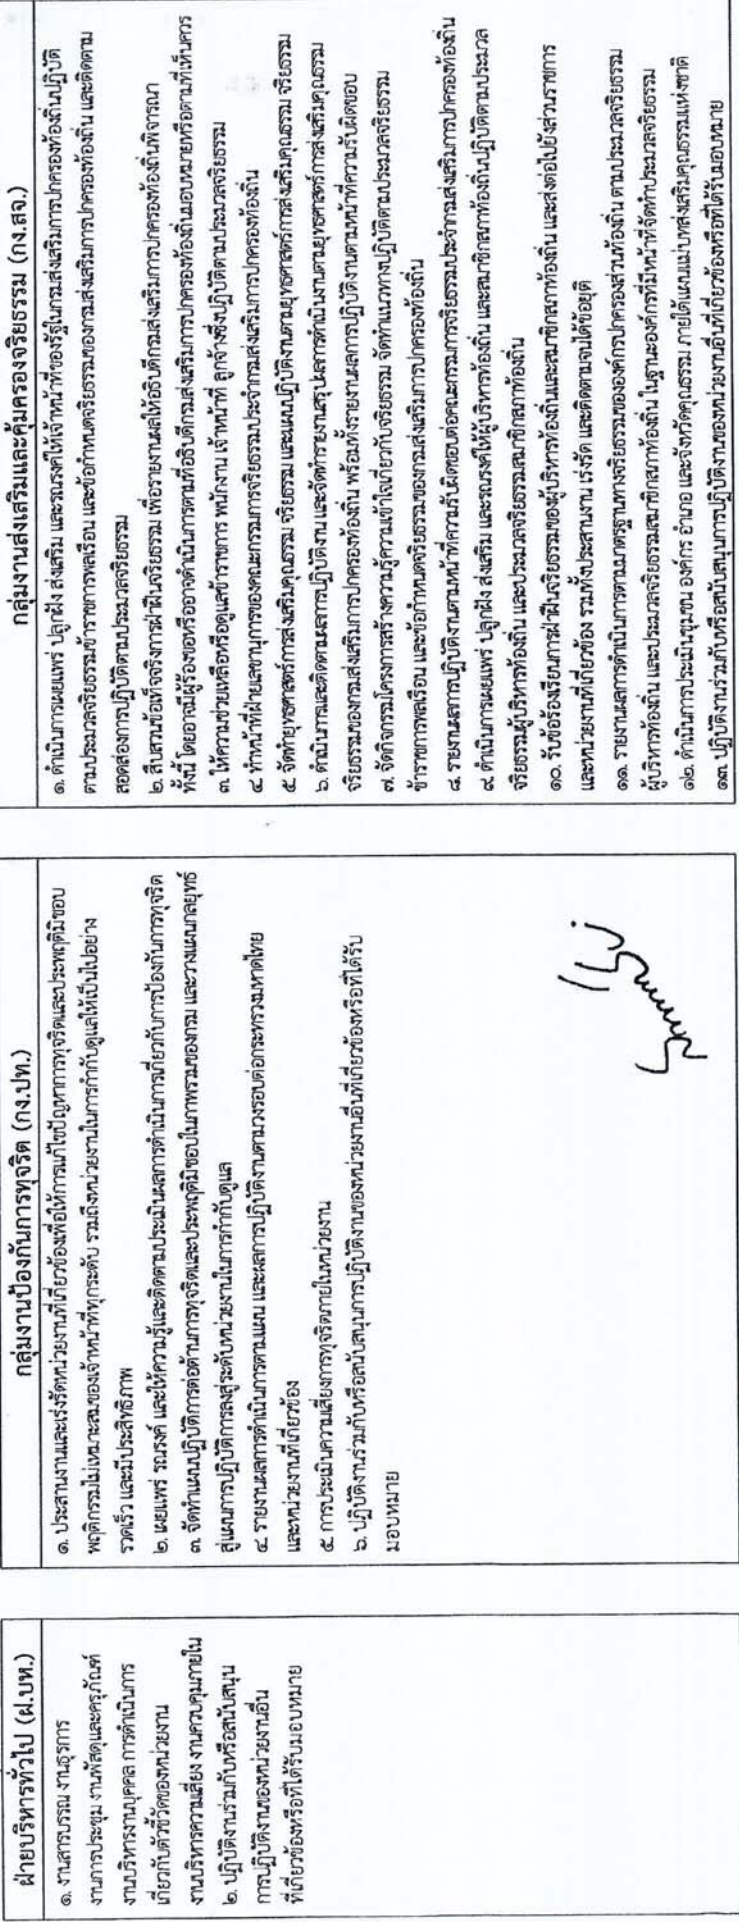 ฝ่ายบริหารทั่วไป (ฝ.บท.)
๑. งานสารบรรณ งานธุรการ
งานการประชุม งานพัสดุและครุภัณฑ์
งานบริหารงานบุคคล การดำเนินการ
เกี่ยวกับตัวชี้วัดของหน่วยงาน
งานบริหารความเสี่ยง งานควบคุมภายใน
๒. ปฏิบัติงานร่วมกับหรือสนับสนุน
การปฏิบัติงานของหน่วยงานอื่น
ที่เกี่ยวข้องหรือที่ได้รับมอบหมาย
กลุ่มงานป้องกันการทุจริต (กง.ปท.)
๑. ประสานงานและเร่งรัดหน่วยงานที่เกี่ยวข้องเพื่อให้การแก้ไขปัญหาการทุจริตและประพฤติมิชอบ
พฤติกรรมไม่เหมาะสมของเจ้าหน้าที่ทุกระดับ รวมถึงหน่วยงานในการกำกับดูแลให้เป็นไปอย่าง
รวดเร็ว และมีประสิทธิภาพ
๒. เผยแพร่ รณรงค์ และให้ความรู้และติดตามประเมินผลการดำเนินการเกี่ยวกับการป้องกันการทุจริต
๓. จัดทำแผนปฏิบัติการต่อต้านการทุจริตและประพฤติมิชอบในภาพรวมของกรม และวางแผนกลยุทธ์
สู่แผนการปฏิบัติการลงสู่ระดับหน่วยงานในการกำกับดูแล
๔. รายงานผลการดำเนินการตามแผน และผลการปฏิบัติงานตามวงรอบต่อกระทรวงมหาดไทย
และหน่วยงานที่เกี่ยวข้อง
๕. การประเมินความเสี่ยงการทุจริตภายในหน่วยงาน
๖. ปฏิบัติงานร่วมกับหรือสนับสนุนการปฏิบัติงานของหน่วยงานอื่นที่เกี่ยวข้องหรือที่ได้รับ
มอบหมาย
กลุ่มงานส่งเสริมและคุ้มครองจริยธรรม (กง.สจ.)
๑. ดำเนินการเผยแพร่ ปลูกฝัง ส่งเสริม และรณรงค์ให้เจ้าหน้าที่ของรัฐในกรมส่งเสริมการปกครองท้องถิ่นปฏิบัติ
ตามประมวลจริยธรรมข้าราชการพลเรือน และข้อกำหนดจริยธรรมของกรมส่งเสริมการปกครองท้องถิ่น และติดตาม
สอดส่องการปฏิบัติตามประมวลจริยธรรม
๒. สืบสวนข้อเท็จจริงการฝ่าฝืนจริยธรรม เพื่อรายงานผลให้อธิบดีกรมส่งเสริมการปกครองท้องถิ่นพิจารณา
ทั้งนี้ โดยอาจมีผู้ร้องขอหรืออาจดำเนินการตามที่อธิบดีกรมส่งเสริมการปกครองท้องถิ่นมอบหมายหรือตามที่เห็นควร
๓. ให้ความช่วยเหลือหรือดูแลข้าราชการ พนักงาน เจ้าหน้าที่ ลูกจ้างซึ่งปฏิบัติตามประมวลจริยธรรม
๔. ทำหน้าที่ฝ่ายเลขานุการของคณะกรรมการจริยธรรมประจำกรมส่งเสริมการปกครองท้องถิ่น
๕. จัดทำยุทธศาสตร์การส่งเสริมคุณธรรม จริยธรรม และแผนปฏิบัติงานตามยุทธศาสตร์การส่งเสริมคุณธรรม จริยธรรม
๖. ดำเนินการและติดตามผลการปฏิบัติงาน และจัดทำรายงานสรุปผลการดำเนินงานตามยุทธศาสตร์การส่งเสริมคุณธรรม
จริยธรรมของกรมส่งเสริมการปกครองท้องถิ่น พร้อมทั้งรายงานผลการปฏิบัติงานตามหน้าที่ความรับผิดชอบ
๗. จัดกิจกรรมโครงการสร้างความรู้ความเข้าใจเกี่ยวกับจริยธรรม จัดทำแนวทางปฏิบัติตามประมวลจริยธรรม
ข้าราชการพลเรือน และข้อกำหนดจริยธรรมของกรมส่งเสริมการปกครองท้องถิ่น
๘. รายงานผลการปฏิบัติงานตามหน้าที่ความรับผิดชอบต่อคณะกรรมการจริยธรรมประจำกรมส่งเสริมการปกครองท้องถิ่น
๙. ดำเนินการเผยแพร่ ปลูกฝัง ส่งเสริม และรณรงค์ให้ผู้บริหารท้องถิ่น และสมาชิกสภาท้องถิ่นปฏิบัติตามประมวล
จริยธรรมผู้บริหารท้องถิ่น และประมวลจริยธรรมสมาชิกสภาท้องถิ่น
๑๐. รับข้อร้องเรียนการฝ่าฝืนจริยธรรมของผู้บริหารท้องถิ่นและสมาชิกสภาท้องถิ่น และส่งต่อไปยังส่วนราชการ
และหน่วยงานที่เกี่ยวข้อง รวมทั้งประสานงาน เร่งรัด และติดตามจนได้ข้อยุติ
๑๑. รายงานผลการดำเนินการตามมาตรฐานทางจริยธรรมขององค์กรปกครองส่วนท้องถิ่น ตามประมวลจริยธรรม
ผู้บริหารท้องถิ่น และประมวลจริยธรรมสมาชิกสภาท้องถิ่น ในฐานะองค์กรที่มีหน้าที่จัดทำประมวลจริยธรรม
๑๒. ดำเนินการประเมินชุมชน องค์กร อำเภอ และจังหวัดคุณธรรม ภายใต้แผนแม่บทส่งเสริมคุณธรรมแห่งชาติ
๑๓. ปฏิบัติงานร่วมกับหรือสนับสนุนการปฏิบัติงานของหน่วยงานอื่นที่เกี่ยวข้องหรือที่ได้รับมอบหมาย